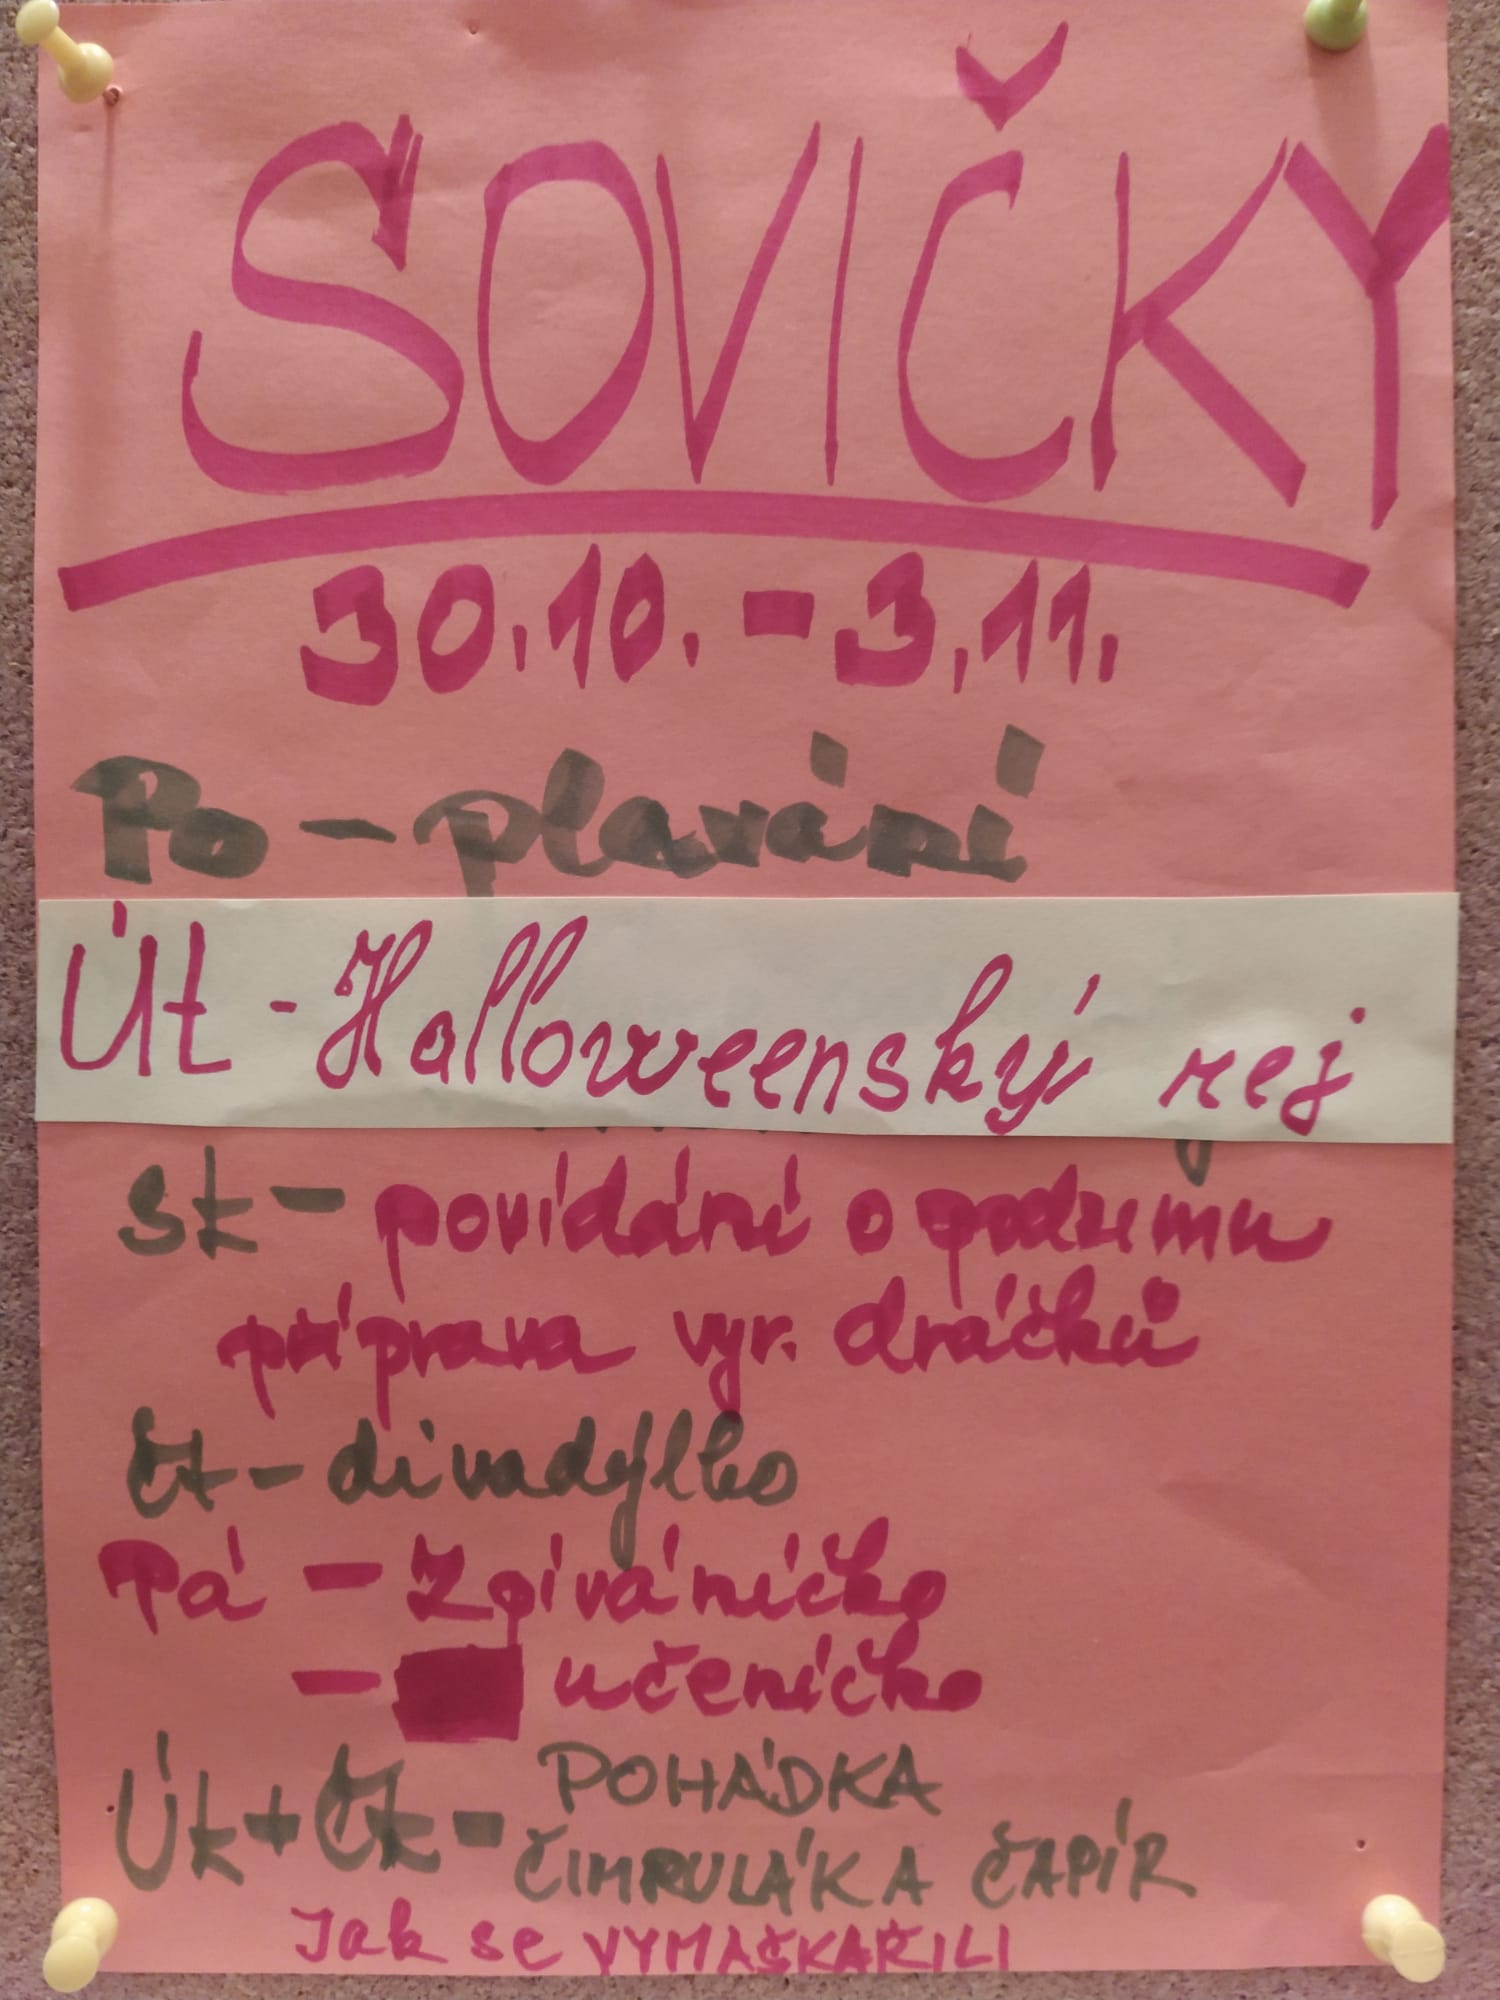 SOVIČKY
30.10. - 3.11.
Po - plavání
Út - Halloweenský rej
St - povídání o podzimu
příprava vyr. dráčků
Čt - divadýlko
Pá - Zpíváníčko
- učeníčko
Út + Čt - POHÁDKA
ČIMRULÁK A ČAPÍR
Jak se VYMAŠKAŘILI